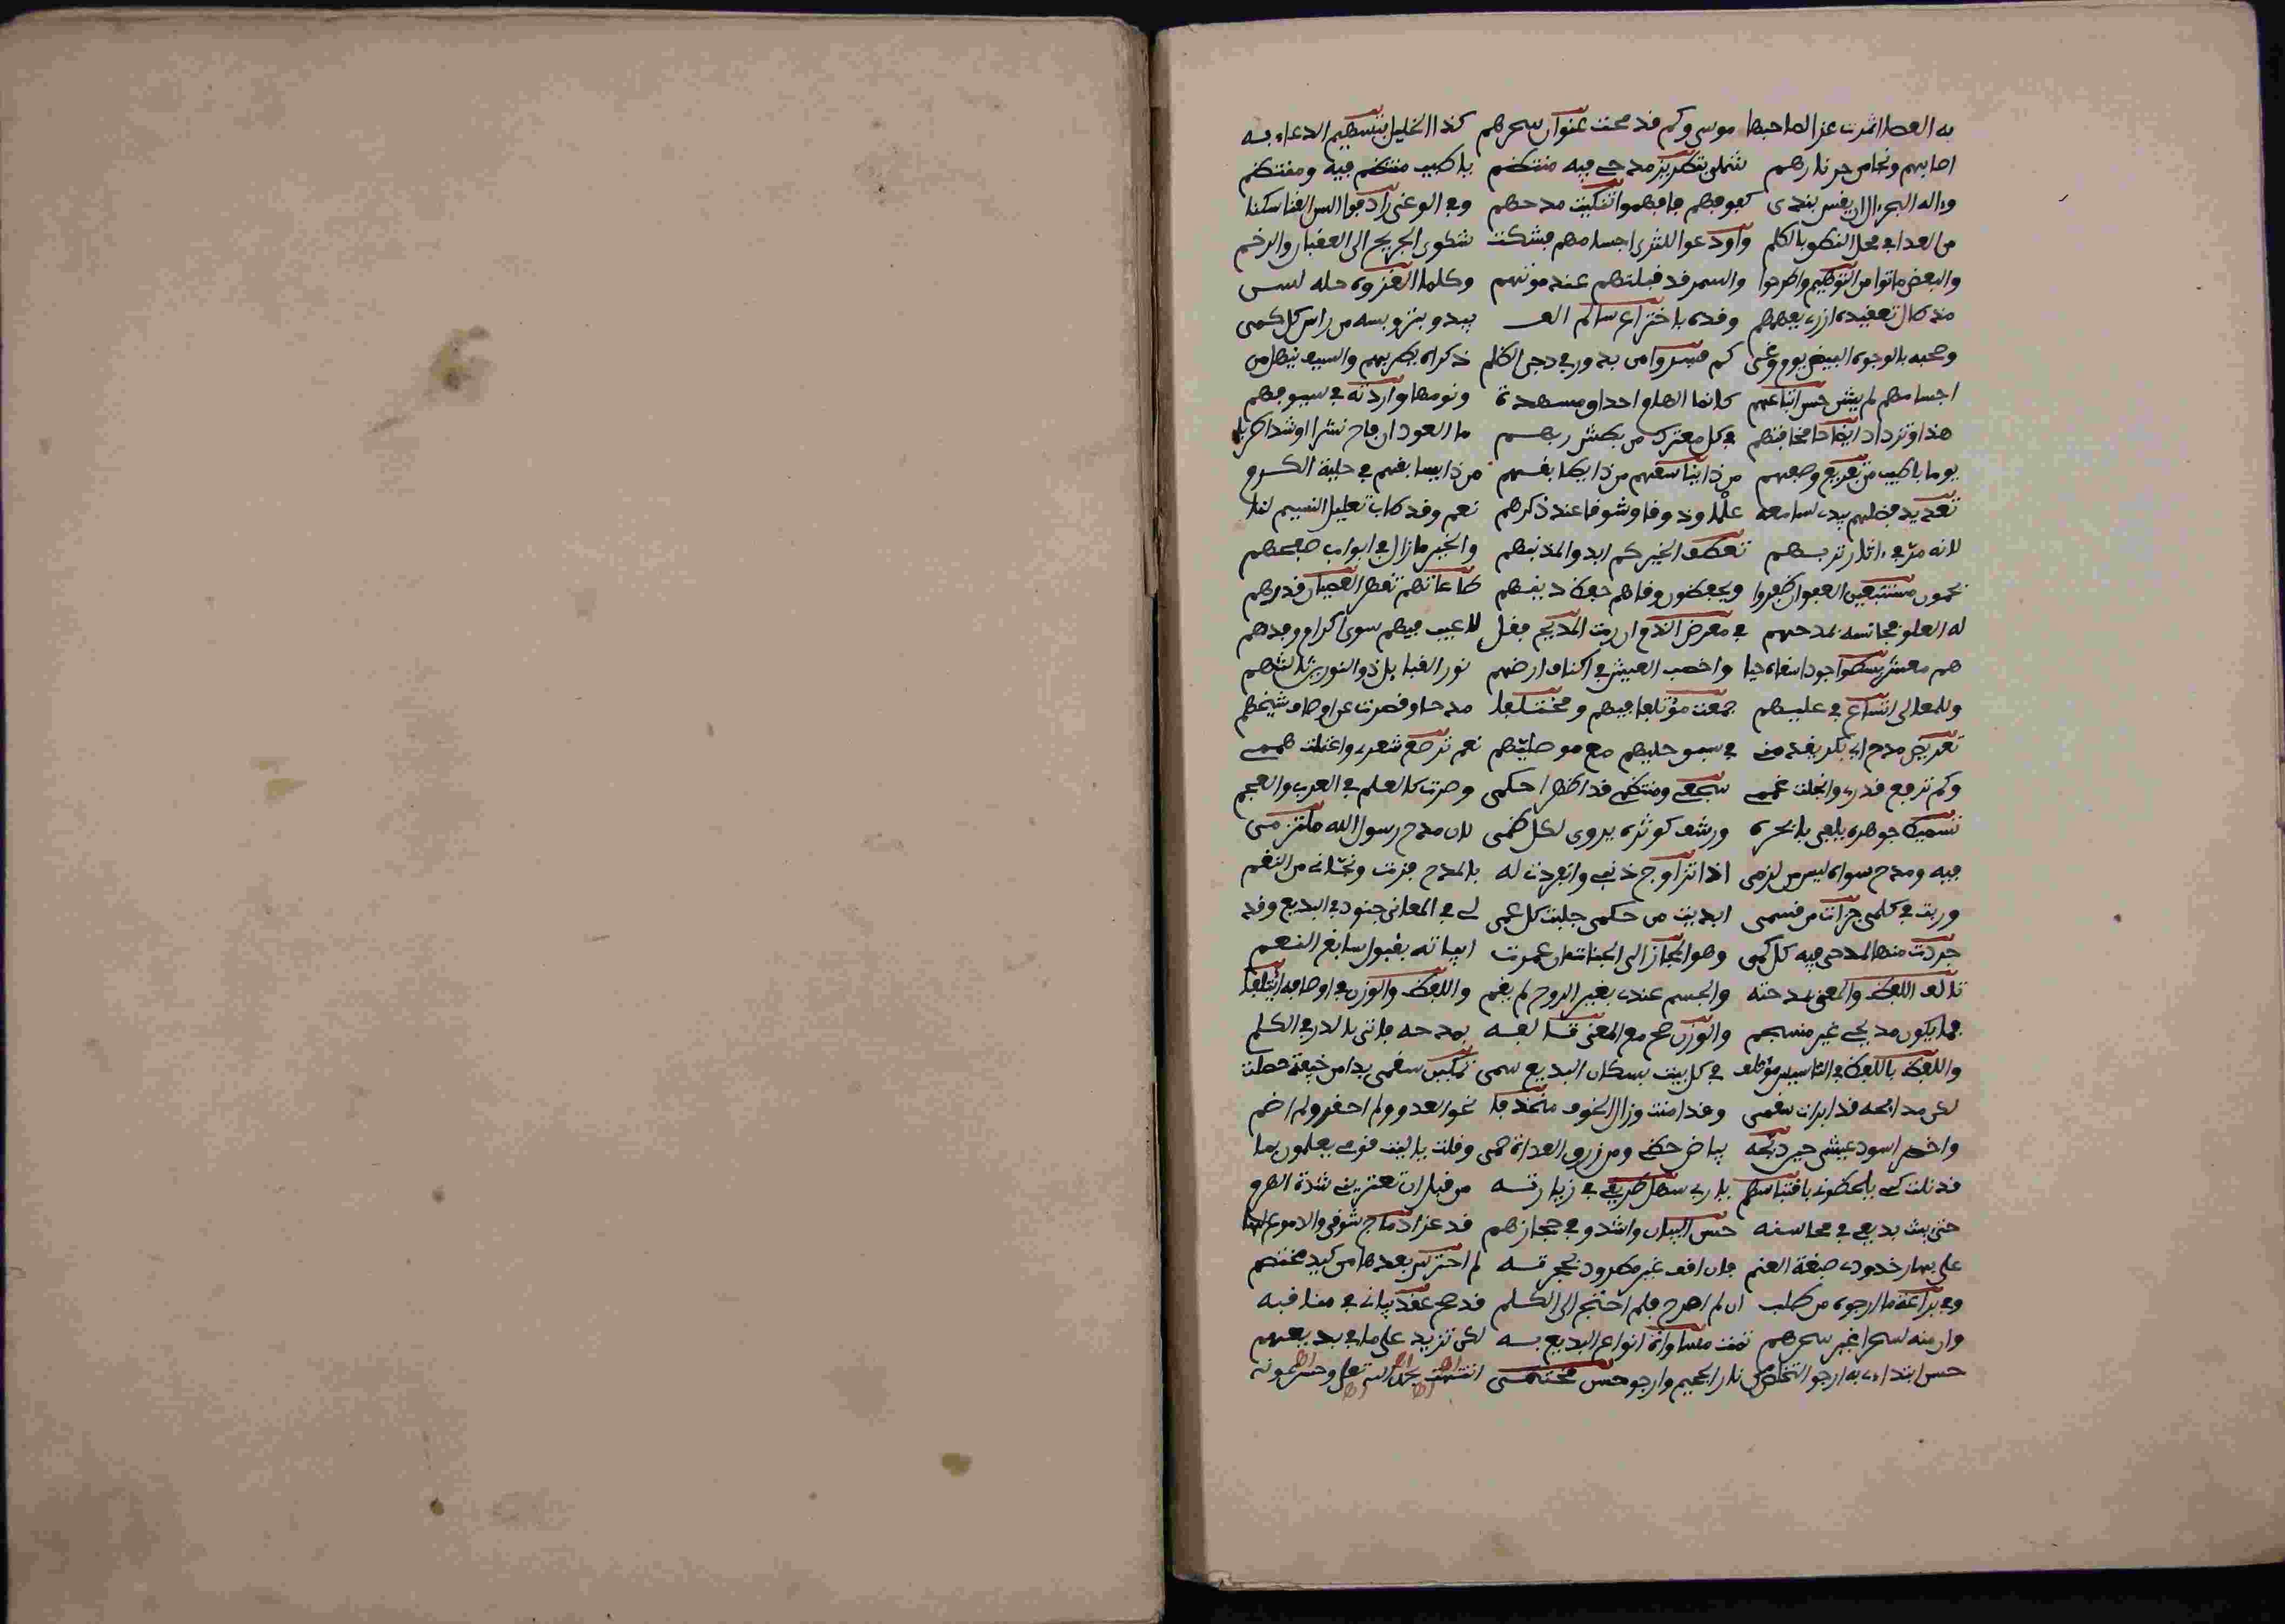 به العصا اثمرت عزا لصاحبها موسى وكم قد محت عنوان سحرهم كذا الخليل بتسهيم الدعاء به
اصابهم ونجا من حر نارهم شملى بتطريز مدحى فيه منتظم يا طيب منتظم فيه ومنتظم
وءاله البحر ءال ان يقس بندى كفوفهم فافهموا تنكيت مدحهم وفى الوغى رادفوا لسن القنا سكنا
من العدا فى محل النطق بالكلم وأودعوا للثرى اجسامهم فشكت شكوى الجريح الى العقبان والرخم
والبعض ماتوا من التوهيم واطرحوا والسمر قد قبلتهم عند موتهم وكلما الغزوه حله لسن
مذ طال تعقيده ازرى بفهمهم وقده باختراع سالم الف يبدو بترويسه من راس كل كمى
وصحبه بالوجوه البيض يوم وغى كم فسروا من بدور فى دجى الظلم ذكراه يطربهم والسيف ينهل من
اجسامهم لم يشن حسن اتباعهم كانما الهام احداق مسهدة ونومها واردته فى سيوفهم
هذا وتزداد ايضاحا مخافتهم فى كل معترك من بطش ربهم ما العود ان فاح نشرا او شدا طربا
يوما باطيب من تفريع وصفهم من ذا يناسقهم من ذا يطابقهم من ذا يسابقهم فى حلبة الكرم
تعديد فضلهم يبدى لسامعه علما وذوقا وشوقا عند ذكرهم نعم وقد طاب تعليل النسيم لنا
لانه مر فى ءاثار تربهم تعطف الخير كم ابدوا لمذنبهم والخير ما زال فى ابواب صفحهم
يحمون مستتبعين العفو ان ظفروا ويحفظون وفاهم حفظ دينهم طاعاتهم تقهر العصيان قدرهم
له العلو فجانسه بمدحهم فى معرض الذم ان رمت المديح فقل لا عيب فيهم سوى اكرام وفدهم
هم معشر بسطوا جودا سقاه حيا واخصب العيش فى اكناف ارضهم نور القبائل ذو النورين ثالثهم
وللمعالى اتساع فى عليهم جمعت مؤتلفا فيهم ومختلفا مدحا وقصرت عن اوصاف شيخهم
تعريض مدح ابى بكر يقدمنى فى سبق حليهم مع موصليهم نعم ترصع شعرى واعتلت هممى
وكم ترفع قدرى وانجلت غممى سجعى ومنتظمى قد اظهرا حكمى وصرت كالعلم فى العرب والعجم
تسميط جوهره يلفى بابحره ورشف كوثره يروى لكل ظمى لان مدح رسول الله ملتزمى
فيه ومدح سواه ليس من لزمى اذا تزاوج ذنبى وانفردت له بالمدح فزت ونجانى من النقم
وريت فى كلمى جزأت من قسمى ابديت من حكمى جليت كل عمى لى فى المعانى جنود فى البديع وقد
جردت منها لمدحى فيه كل كمى وهو المجاز الى الجنات ان عمرت ابياته بقبول سابغ النعم
تالف اللفظ والمعنى بمدحته والجسم عندى بغير الروح لم يقم واللفظ والوزن فى اوصافه ائتلفا
فما يكون مديحى غير منسجم والوزن صح مع المعنى تالفه بمدحه فاتى بالدر فى الكلم
واللفظ باللفظ فى التاسيس مؤتلف فى كل بيت بسكان البديع سمى تمكين سقمى بدا من خيفة حصلت
لكن مدائحه قد ابرات سقمى وقد امنت وزال الخوف منحذفا نحو العدو ولم احقر ولم اضم
واخضر اسود عيشى حين دبجه بياض حظى ومن زرق العداة حمى وقلت يا ليت قومى يعلمون بما
قد نلت كى يلحظونى باقتباسهم يا رب سهل طريقى فى زيارته من قبل ان تعترينى شدة الهرم
حتى يبث بديعى فى محاسنه حسن البيان واشدو فى حجازهم قد عز ادماج شوقى والدموع لها
على بهار خدودى صبغة العنم فان اقف غير مطرود بحجرته لم احترس بعدها من كيد مختصم
وفى براعة ما ارجوه من طلب ان لم اصرح فلم احتج الى الكلم قد صح عقد بيانى فى مناقبه
وان منه لسحرا غير سحرهم تمت مساواة انواع البديع به لكن تزيد على ما فى بديعهم
حسن ابتداءى به ارجو التخلص من نار الجحيم وارجو حسن مختتمى انتهت بحمد الله تعالى وحسن عونه